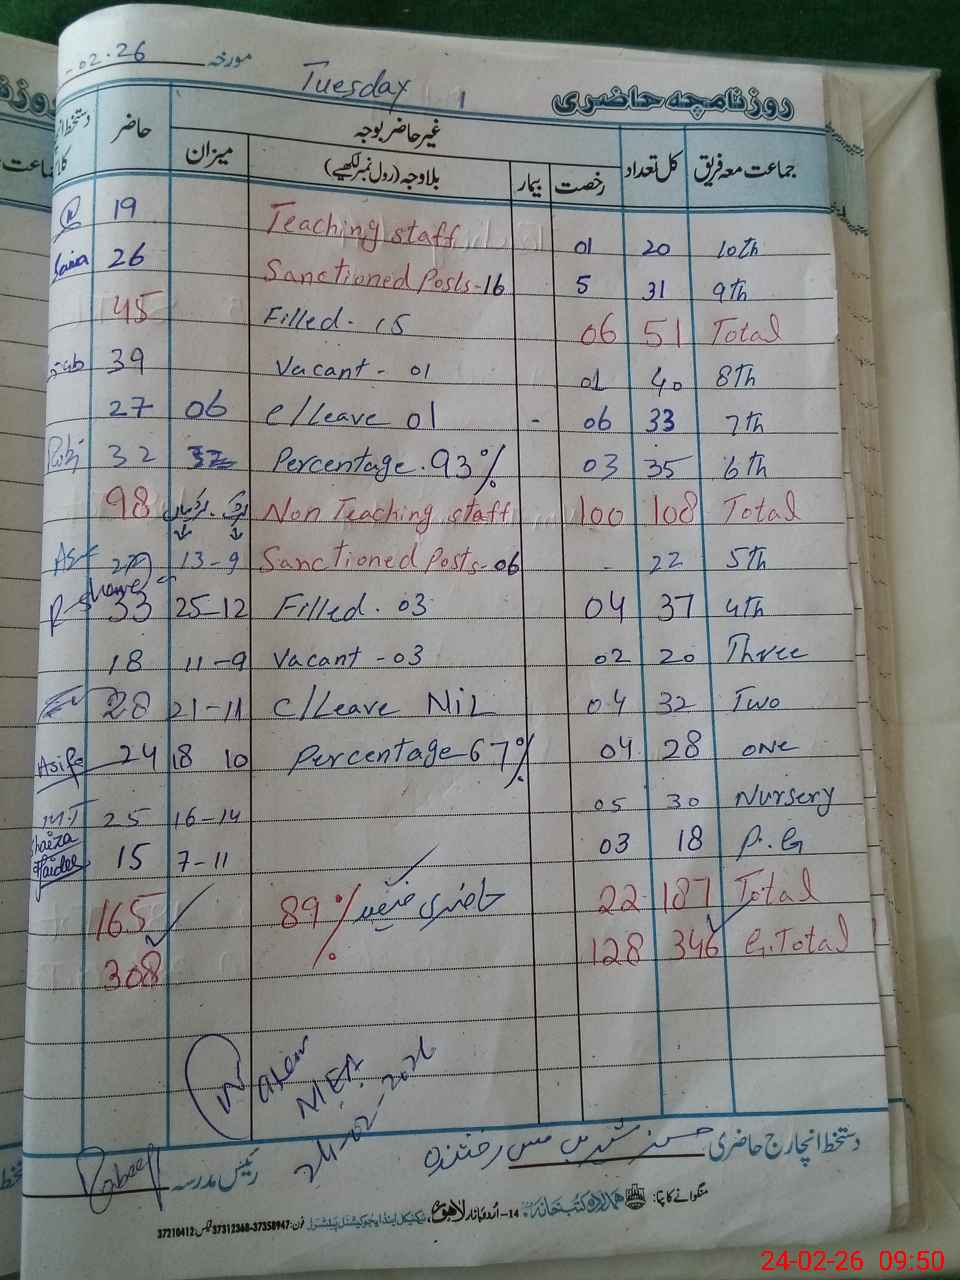 مورخہ -02-26
Tuesday
روزنامچہ حاضری
جماعت معہ فریق کل تعداد غیر حاضر بوجہ میزان حاضر
رخصت بیمار بلاوجہ (رول نمبر لکھیے)
19 Teaching staff 01 20 10th
Saira 26 Sanctioned Posts-16 5 31 9th
45 Filled - 15 06 51 Total
39 Vacant - 01 01 40 8th
27 06 C/Leave 01 - 06 33 7th
32 Percentage. 93% 03 35 6th
98 Non Teaching staff 100 108 Total
13-9 Sanctioned Posts-06 - 22 5th
33 25-12 Filled. 03 04 37 4th
18 11-9 Vacant -03 02 20 Three
28 21-11 C/Leave NiL 04 32 Two
Asifa 24 18 10 Percentage 67% 04 28 one
25 16-14 05 30 Nursery
15 7-11 03 18 P.G
165 89% حاضری فیصد 22 187 Total
308 % 128 346 G.Total
MEA
24-02-2026
دستخط انچارج حاضری
رئیس مدرسہ
منگوانے کا پتا: ہمالہ اردو کتب خانہ 14-اردو بازار لاہور، فون: 37358947-37312368 فیکس: 37210412
24-02-26 09:50